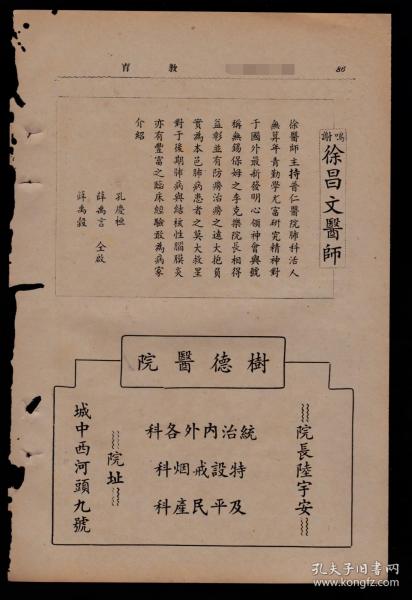 86
教育
鳴謝
徐昌文醫師
徐醫師主持普仁醫院肺科活人
無算年青勤學尤富研究精神對
于國外最新發明心領神會與號
稱無錫保姆之李克樂院長相得
益彰並有防癆治癆之遠大抱負
實為本邑肺病患者之莫大救星
對于後期肺病與結核性腦膜炎
亦有豐富之臨床經驗敢為病家
介紹
孔慶
薛禹言 仝啟
薛禹穀
樹德醫院
院長陸宇安
統治內外各科
特設戒烟科
及平民產科
院址
城中西河頭九號
孔夫子旧书网
www.kongfz.com